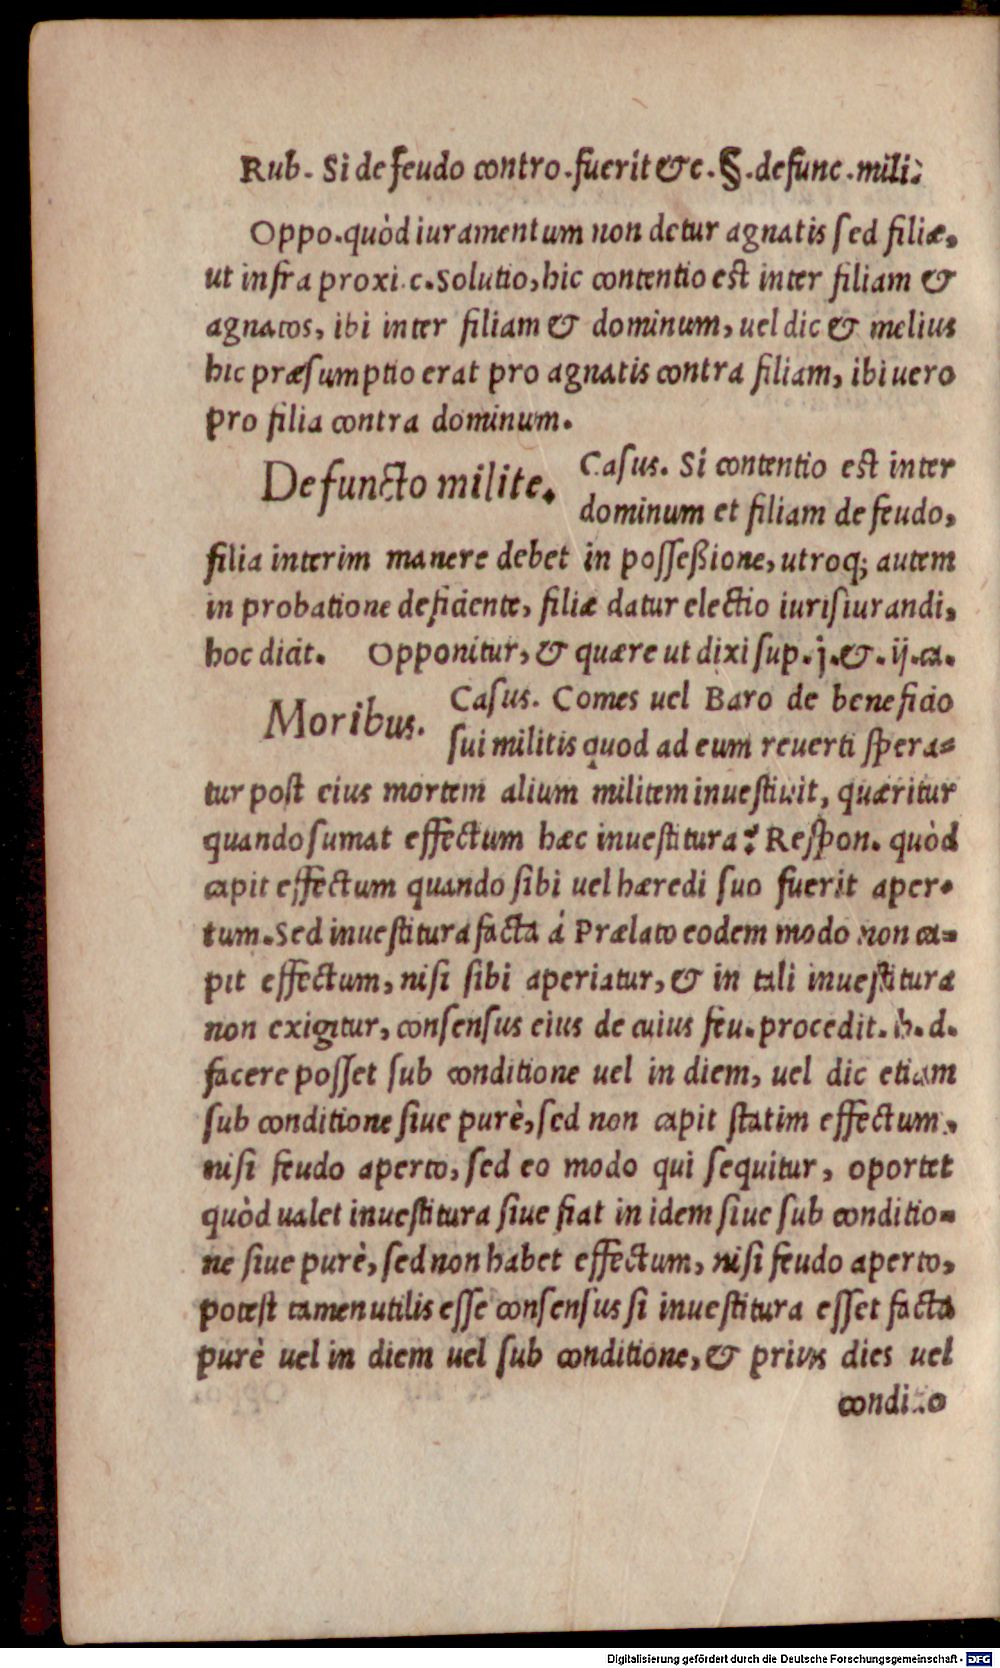 Rub. Si de feudo contro. fuerit &c. §. defunc. mili.
Oppo. quòd iuramentum non detur agnatis sed filiæ,
ut infra proxi. c. Solutio, hic contentio est inter filiam &
agnatos, ibi inter filiam & dominum, uel dic & melius
hic præsumptio erat pro agnatis contra filiam, ibi uero
pro filia contra dominum.
Defuncto milite. Casus. Si contentio est inter
dominum et filiam de feudo,
filia interim manere debet in posseßione, utroq; autem
in probatione deficiente, filiæ datur electio iurisiurandi,
hoc dicit. Opponitur, & quære ut dixi sup. j. &. ij. ca.
Moribus. Casus. Comes uel Baro de beneficio
sui militis quod ad eum reuerti spera=
tur post eius mortem alium militem inuestiuit, quæritur
quando sumat effectum hæc inuestitura? Respon. quòd
capit effectum quando sibi uel hæredi suo fuerit aper=
tum. Sed inuestitura facta á Prælato eodem modo non ca=
pit effectum, nisi sibi aperiatur, & in tali inuestitura
non exigitur, consensus eius de cuius feu. procedit. h. d.
facere posset sub conditione uel in diem, uel dic etiam
sub conditione siue purè, sed non capit statim effectum,
nisi feudo aperto, sed eo modo qui sequitur, oportet
quòd ualet inuestitura siue fiat in idem siue sub conditio=
ne siue purè, sed non habet effectum, nisi feudo aperto,
potest tamen utilis esse consensus si inuestitura esset facta
purè uel in diem uel sub conditione, & prius dies uel
conditio
Digitalisierung gefördert durch die Deutsche Forschungsgemeinschaft - DFG